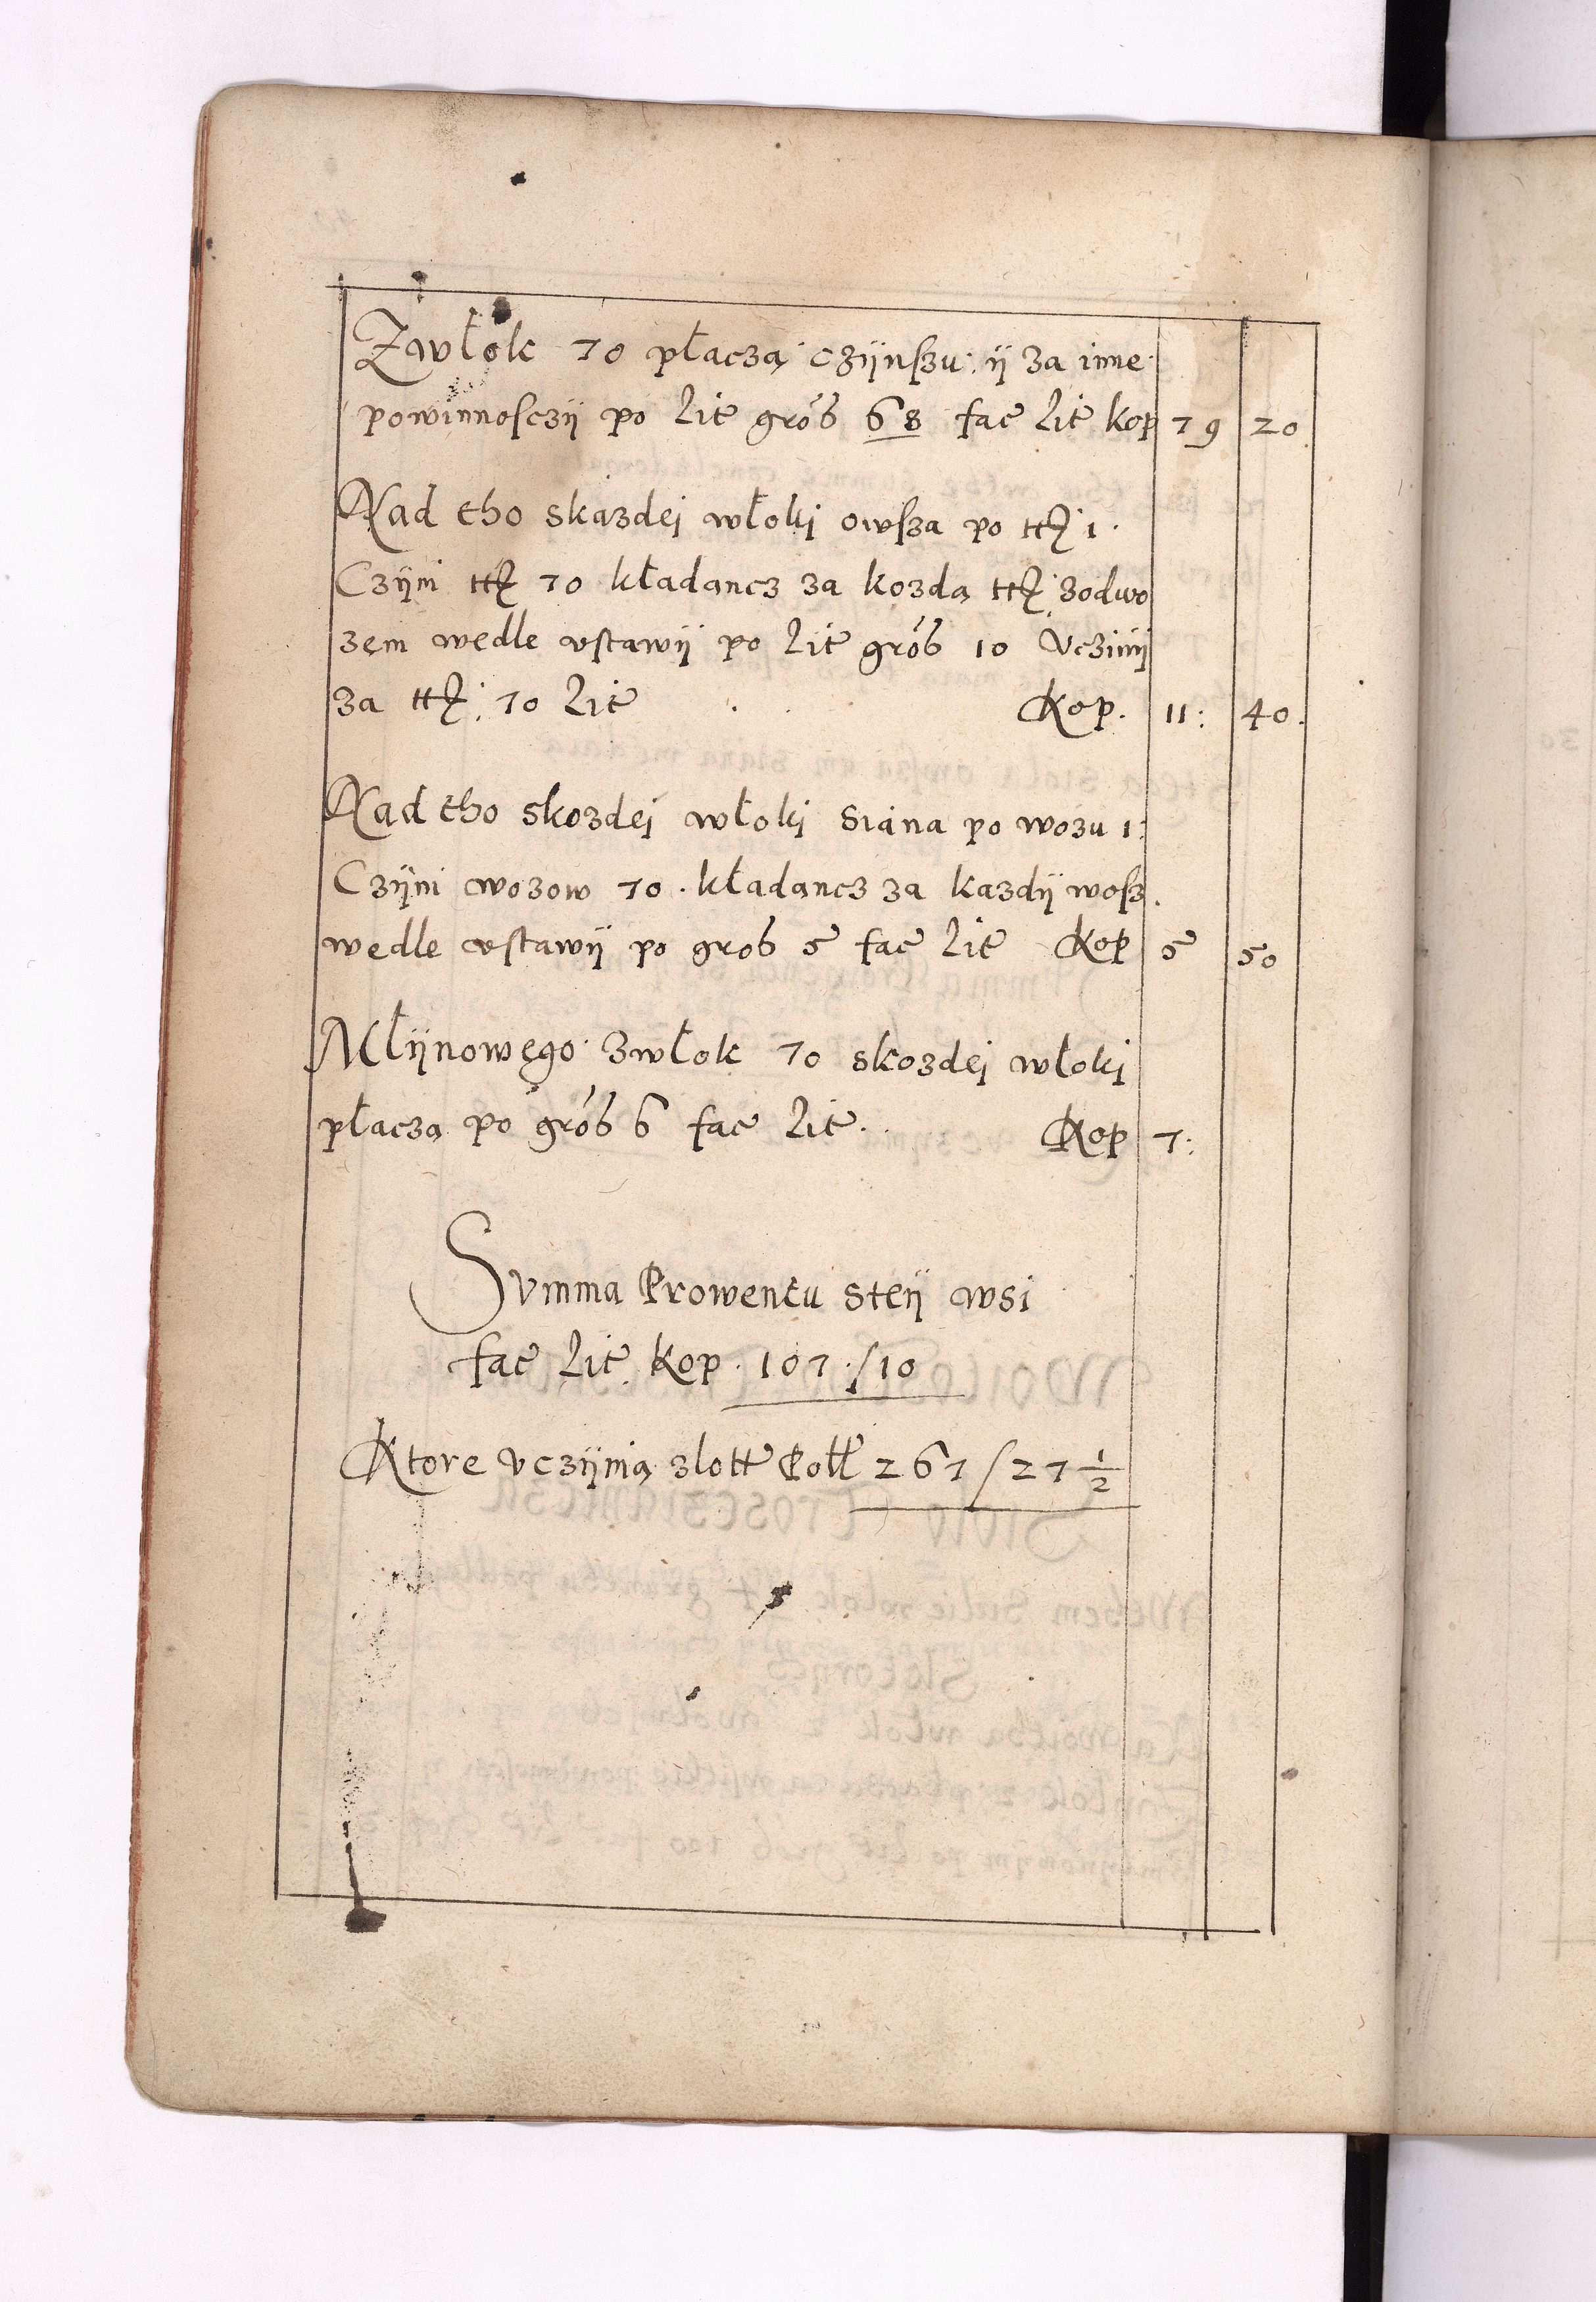 Zwłok 70 płaczą czijnszu: ij za inne
powinnosczij po Lit grosz 68 fac Lit kop 79 20
Nad tho skazdej włoki owsza po ttz 1.
Czijni ttz 70 kładancz za kozdą ttz zodwo
zem wedle vstawij po Lit grosz 10 Vczinij
za ttz: 70 Lit Kop. 11: 40.
Nad tho skozdej włoki siana po wozu 1:
Czijni wozow 70. kładancz za kazdij wosz.
wedle vstawij po grosz 5 fac Lit Kop 5 50
Młijnowego zwłok 70 skozdej włoki
płaczą po grosz 6 fac Lit. Kop 7:
Svmma Prowentu steij wsi
fac Lit. kop. 107./10
Ktore vczijnią zlott Poll 267/27 1/2